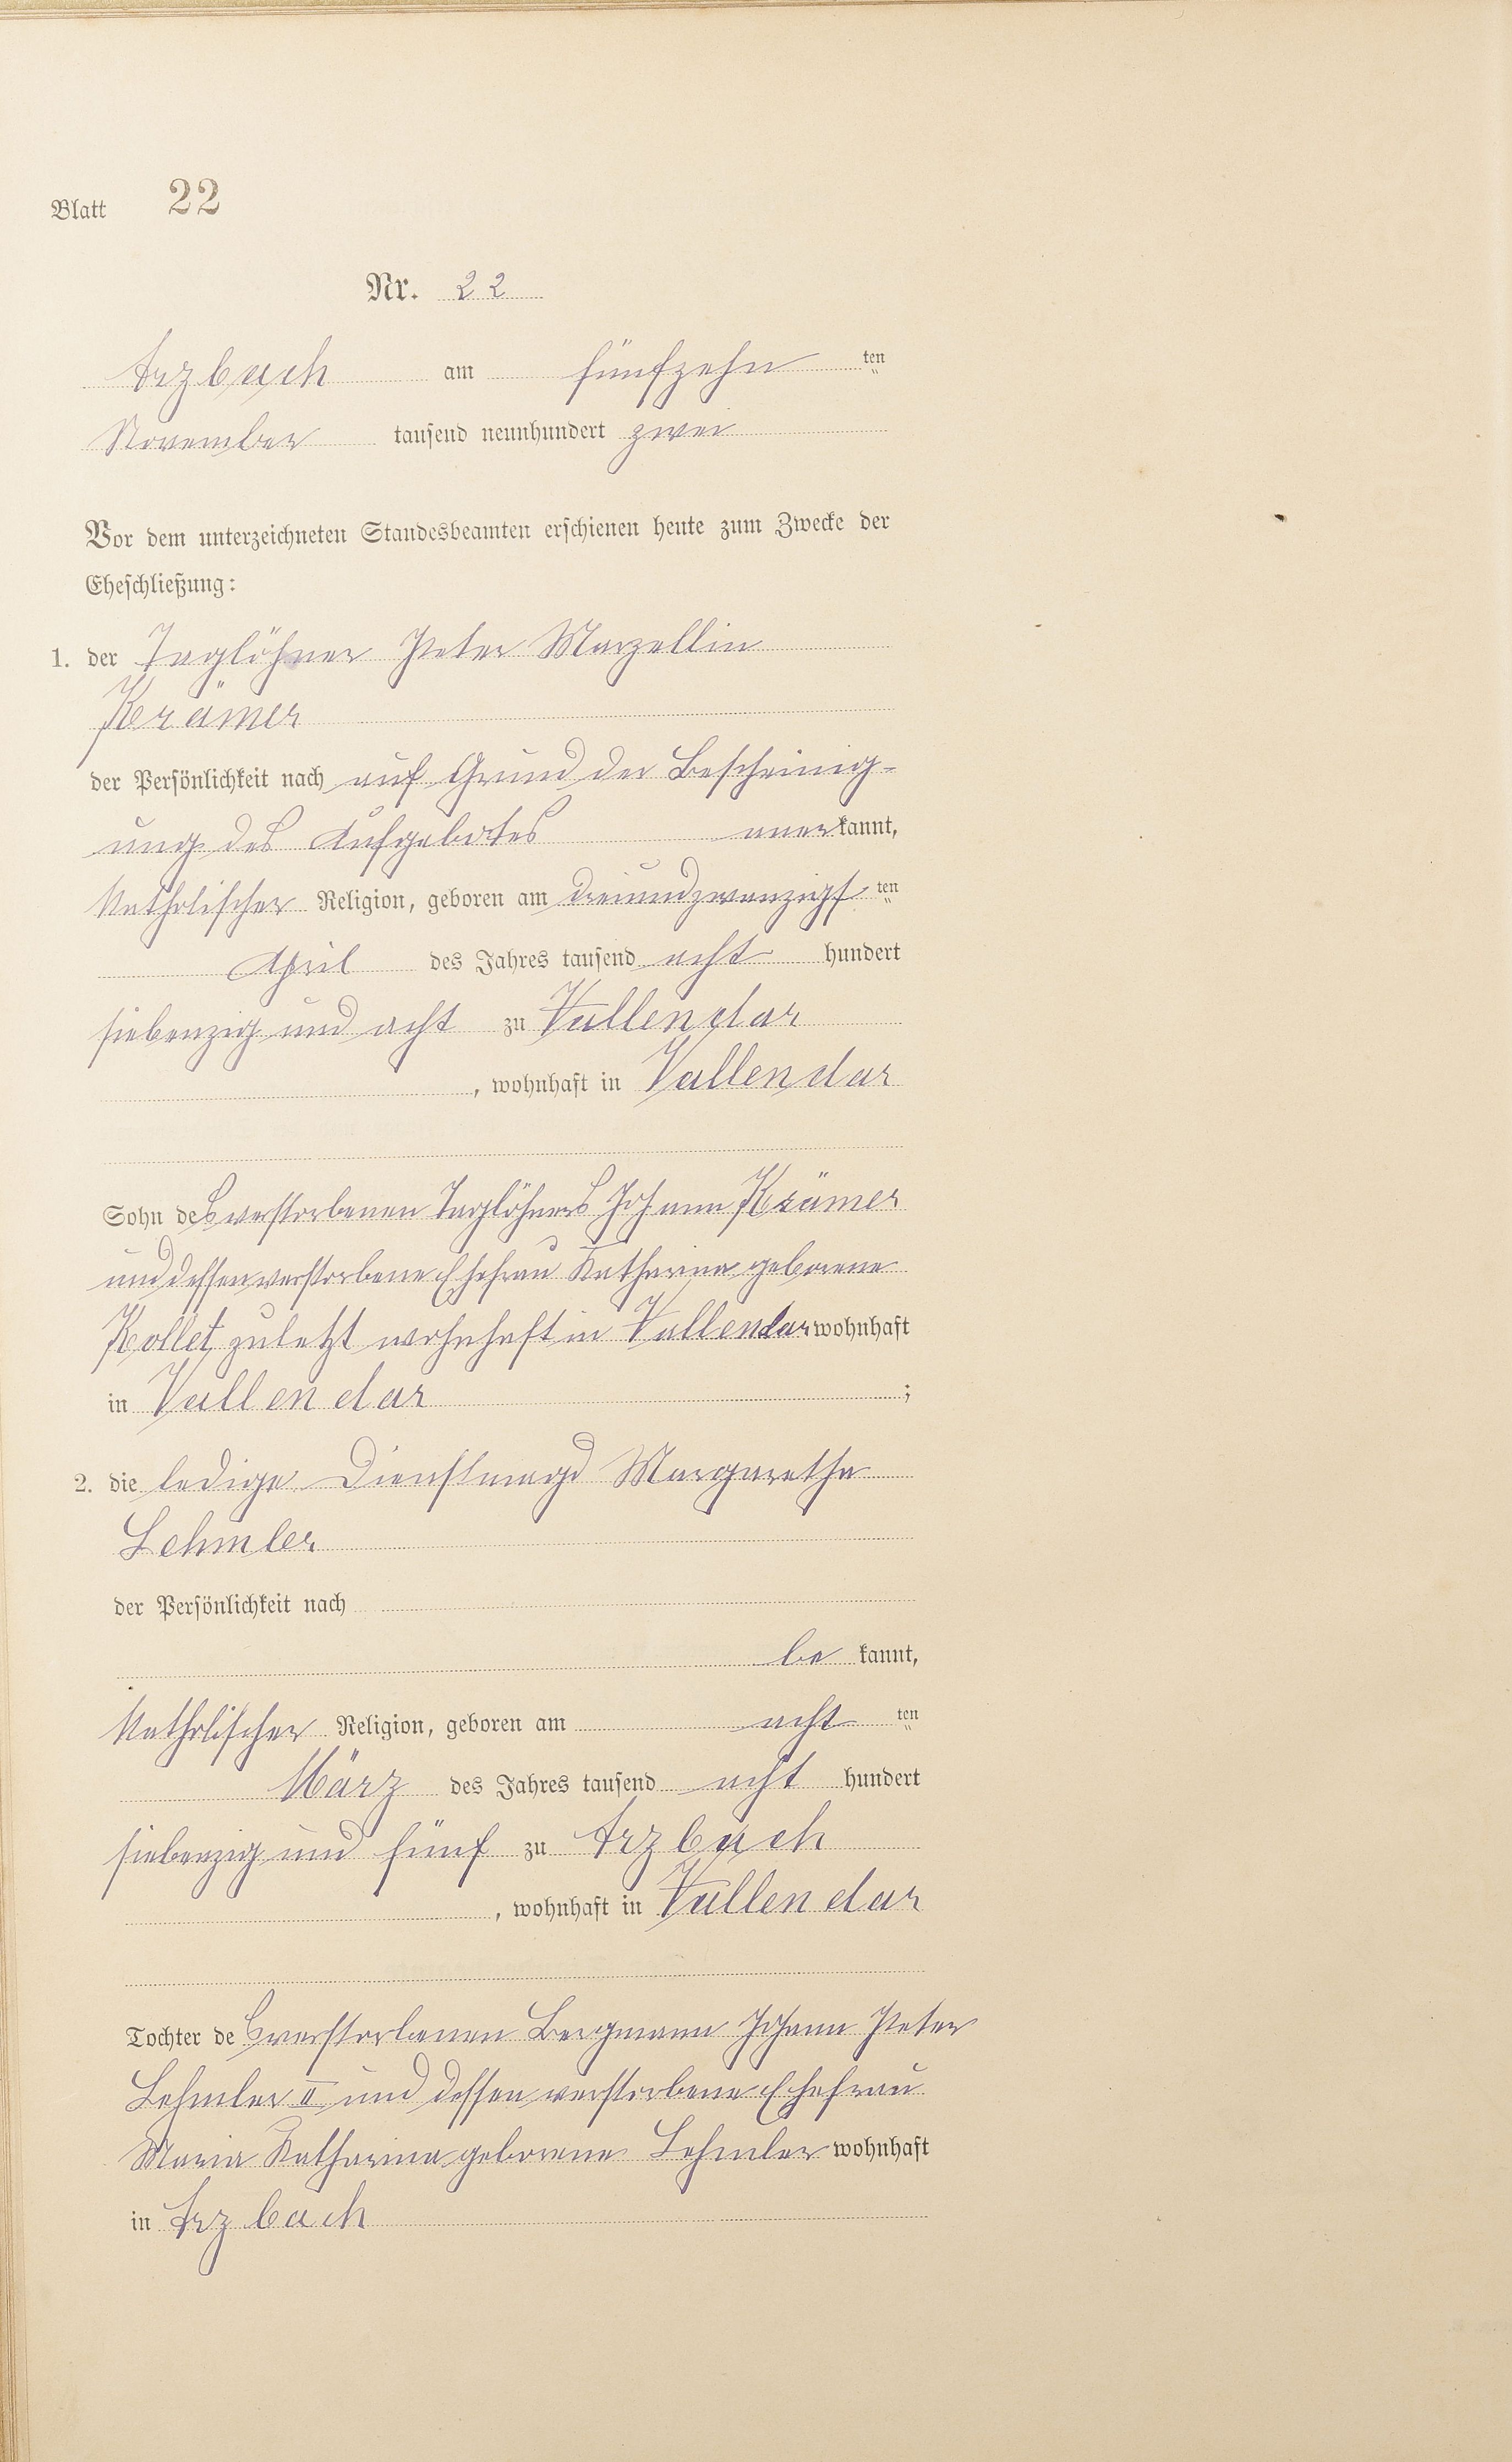 Blatt 22
Nr. 22
Arzbach am fünfzehn ten
November tausend neunhundert zwei
Vor dem unterzeichneten Standesbeamten erschienen heute zum Zwecke der
Eheschließung:
1. der Taglöhner Peter Marzellin
Krämer
der Persönlichkeit nach auf Grund der Bescheinig-
ung des Aufgebotes anerkannt,
Katholischer Religion, geboren am dreiundzwanzigsten
April des Jahres tausend acht hundert
siebenzig und acht zu Vallendar
, wohnhaft in Vallendar
Sohn des verstorbenen Taglöhners Johann Krämer
und dessen verstorbene Ehefrau Katharina geborene
Kollet, zuletzt wohnhaft in Vallendar wohnhaft
in Vallendar ;
2. die ledige Dienstmagd Margaretha
Lehmler
der Persönlichkeit nach
be kannt,
Katholischer Religion, geboren am acht ten
März des Jahres tausend acht hundert
siebenzig und fünf zu Arzbach
, wohnhaft in Vallendar
Tochter des verstorbenen Bergmann Johann Peter
Lehmler II und dessen verstorbene Ehefrau
Maria Katharina geborene Lehmler wohnhaft
in Arzbach